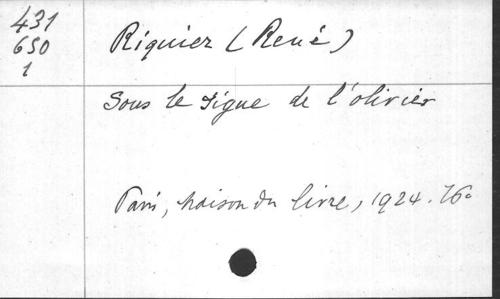 431
650
1
Riquier (René)
Sous le signe de l'olivier
Paris, Maison du livre, 1924. 16°